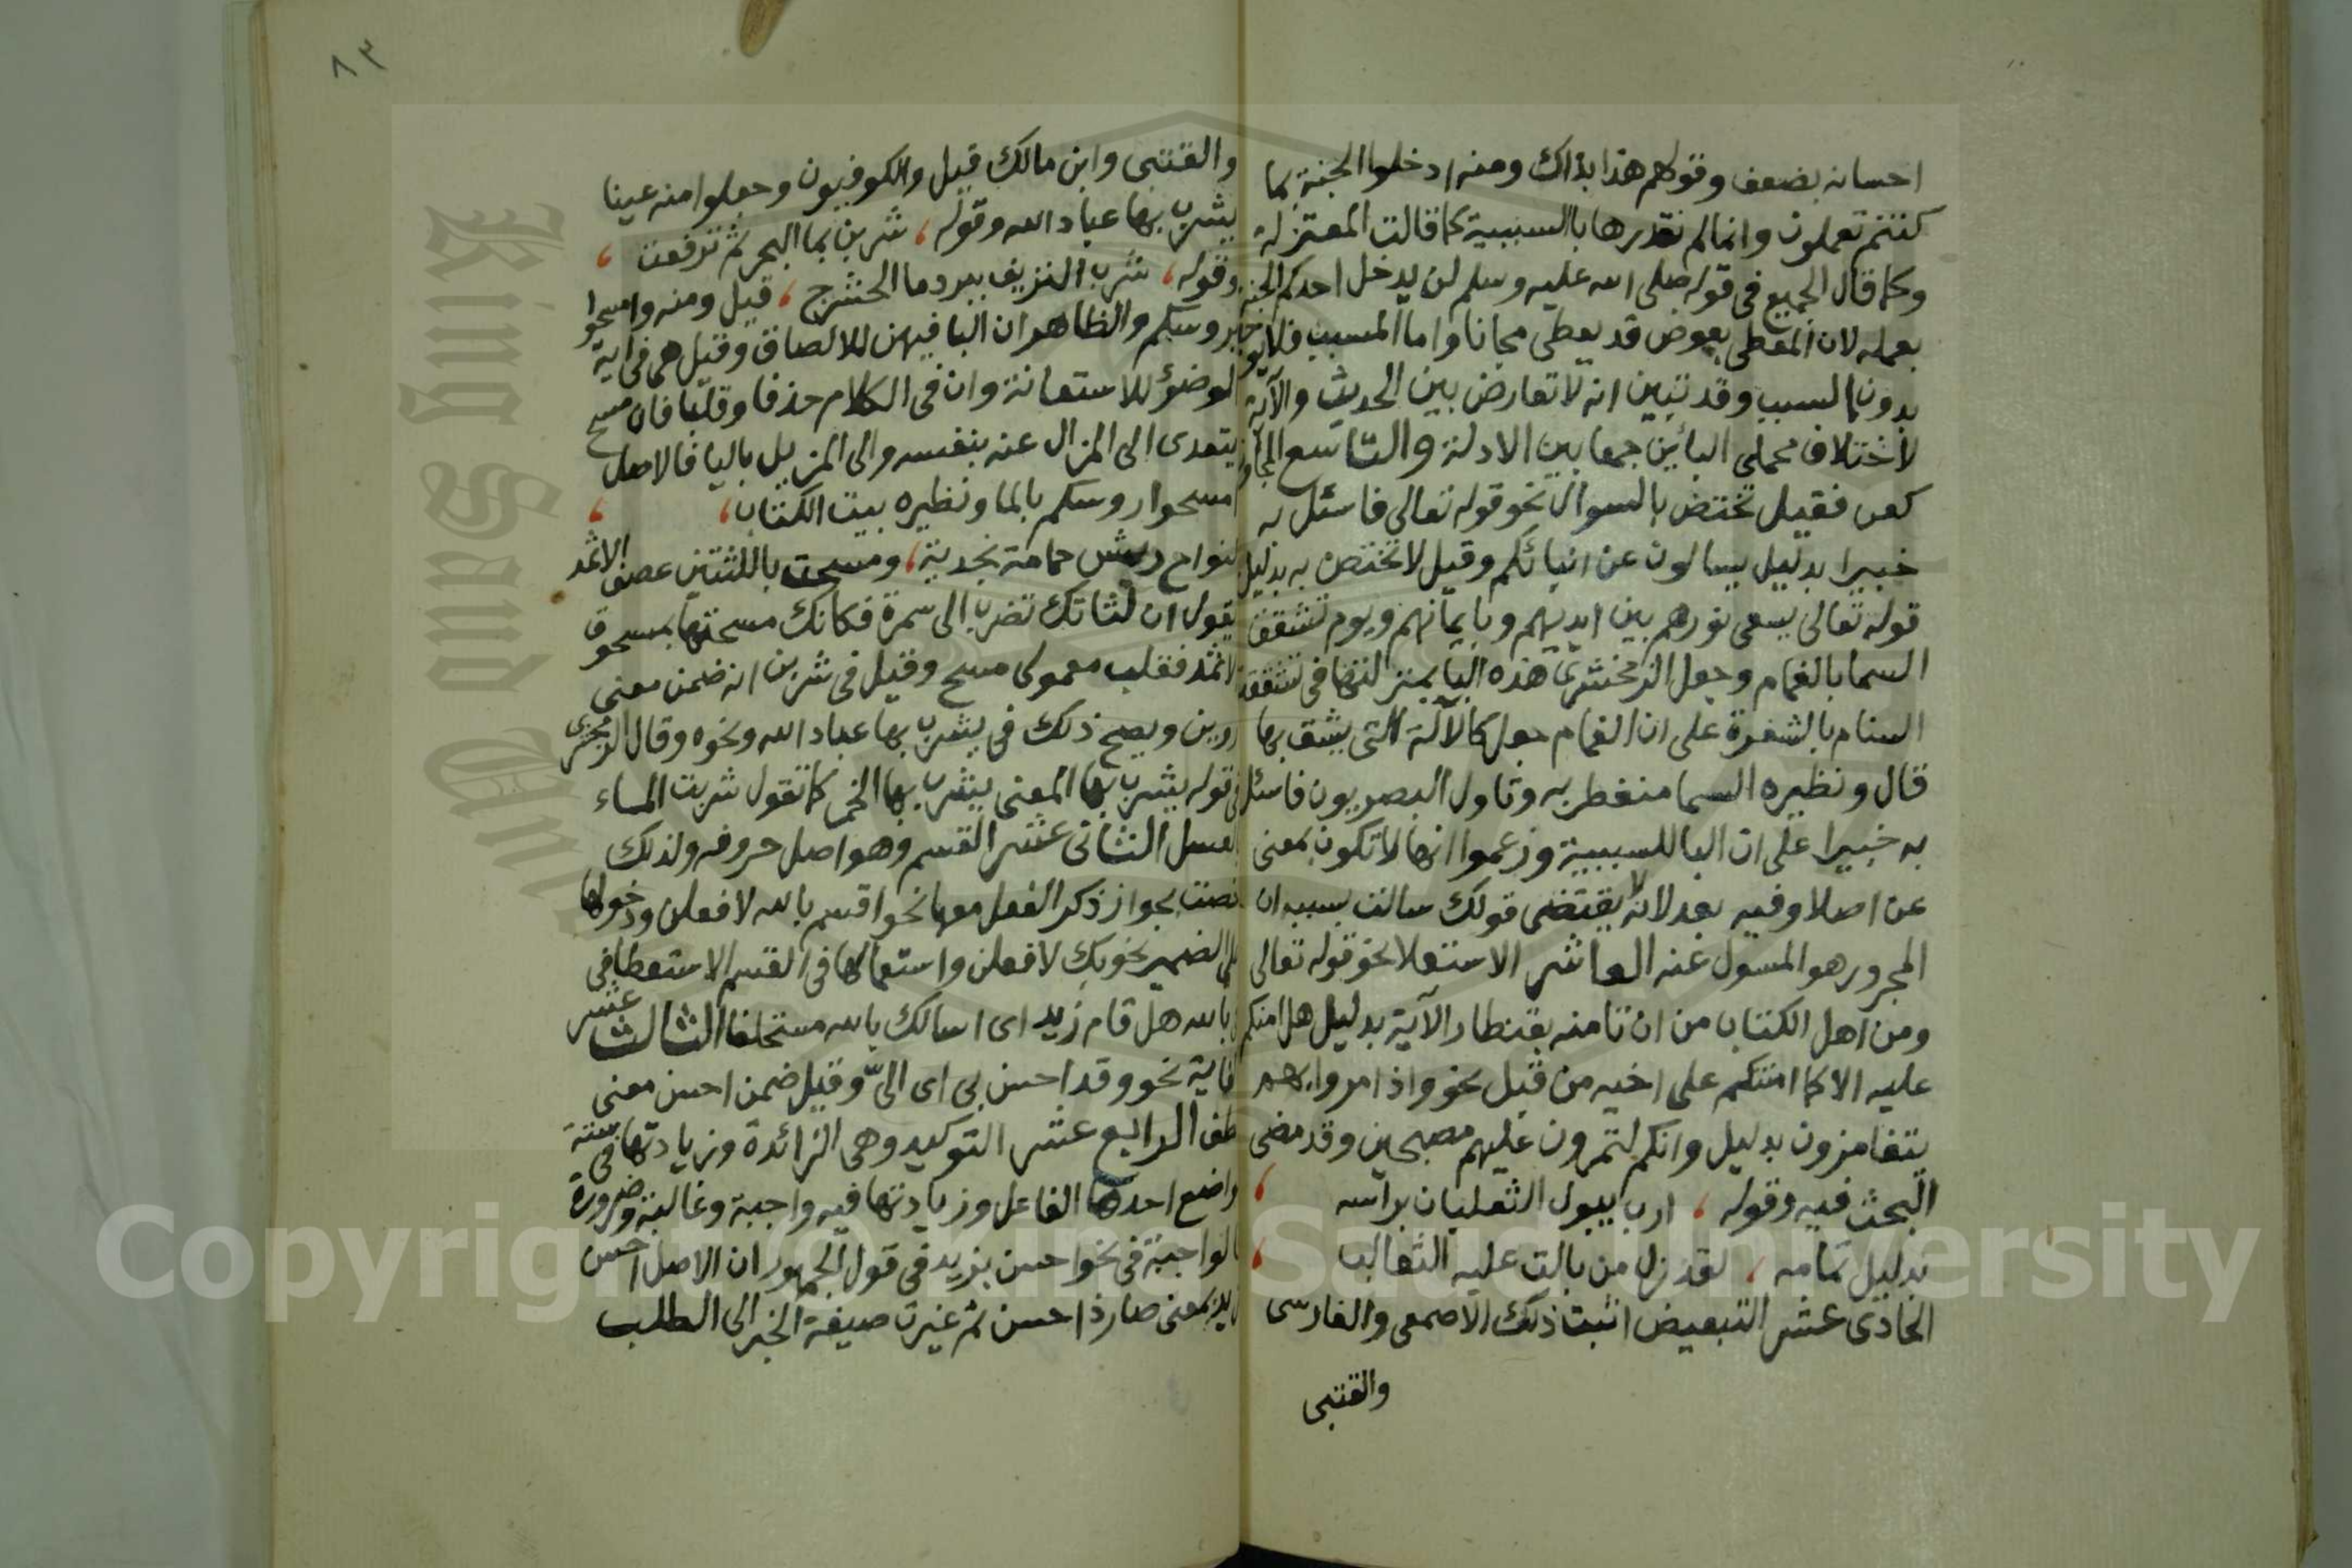 احسانه بضعف وقولهم هذا بذاك ومنه ادخلوا الجنة بما
كنتم تعملون وانما لم نقدرها بالسببية كما قالت المعتزلة
وكما قال الجميع في قوله صلى الله عليه وسلم لن يدخل احدكم الجنة
بعمله لان المعطي بعوض قد يعطي مجانا واما المسبب فلا يو
بدون السبب وقد تبين انه لا تعارض بين الحديث والآية
لاختلاف محملي البائين جمعا بين الادلة والتاسع المجاوز
كعن فقيل تختص بالسوال نحو قوله تعالى فاسئل به
خبيرا بدليل يسالون عن انبائكم وقيل لا تختص به بدليل
قوله تعالى يسعى نورهم بين ايديهم وبايمانهم ويوم تشقق
السما بالغمام وجعل الزمخشري هذه البا بمنزلتها في شققت
السنام بالشفرة على ان الغمام جعل كالآلة التي يشق بها
قال ونظيره السما منفطر به وتاول البصريون فاسئل
به خبيرا على ان البا للسببية وزعموا انها لا تكون بمعنى
عن اصلا وفيه بعد لانه لا يقتضي قولك سالت بسببه ان
المجرور هو المسول عنه العاشر الاستعلا نحو قوله تعالى
ومن اهل الكتاب من ان تامنه بقنطار الآية بدليل هل امنكم
عليه الا كما امنتكم على اخيه من قبل نحو واذا مروا بهم
يتغامزون بدليل وانكم لتمرون عليهم مصبحين وقد مضى
البحث فيه وقوله ، ارب يبول الثعلبان براسه ،
بدليل تمامه ، لقد زل من بالت عليه الثعالب ،
الحادي عشر التبعيض اثبت ذلك الاصمعي والفارسي
والقتبى
٨٣
والقتبى وابن مالك قيل والكوفيون وجعلوا منه عينا
يشرب بها عباد الله وقوله ، شربن بما البحر ثم ترفعت ،
وقوله ، شرب النزيف ببرد ما الحشرج ، قيل ومنه وامسحوا
بروسكم والظاهر ان البا فيهن للالصاق وقيل هي في اية
الوضؤ للاستعانة وان في الكلام حذفا وقلبا فان مسح
يتعدى الى المزال عنه بنفسه والى المزيل بالبا فالاصل
امسحوا روسكم بالما ونظيره بيت الكتاب ، ،
كنواح ريش حمامة نجدية ، ومسحت باللثتين عصف الاثمد
يقول ان لثاتك تضرب الى سمرة فكانك مسحتها بمسحوق
الاثمد فقلب معمولي مسح وقيل في شربن انه ضمن معنى
روين ويصح ذلك في يشرب بها عباد الله ونحوه وقال الزمخشري
في قوله يشرب بها المعنى يشرب بها الخمر كما تقول شربت الماء
بالعسل الثاني عشر القسم وهو اصل حروفه ولذلك
خصت بجواز ذكر الفعل معها نحو اقسم بالله لافعلن ودخولها
على الضمير نحو بك لافعلن واستعمالها في القسم الاستعطافي
نحو بالله هل قام زيد اى اسالك بالله مستحلفا الثالث عشر
الغاية نحو وقد احسن بي اى اليّ وقيل ضمن احسن معنى
لطف الرابع عشر التوكيد وهي الزائدة وزيادتها في ستة
مواضع احدها الفاعل وزيادتها فيه واجبة وغالبة وضرورة
فالواجبة في نحو احسن بزيد في قول الجمهور ان الاصل احسن
زيد بمعنى صار ذا حسن ثم غيرت صيغة الخبر الى الطلب
King Saud University
Copyright © King Saud University